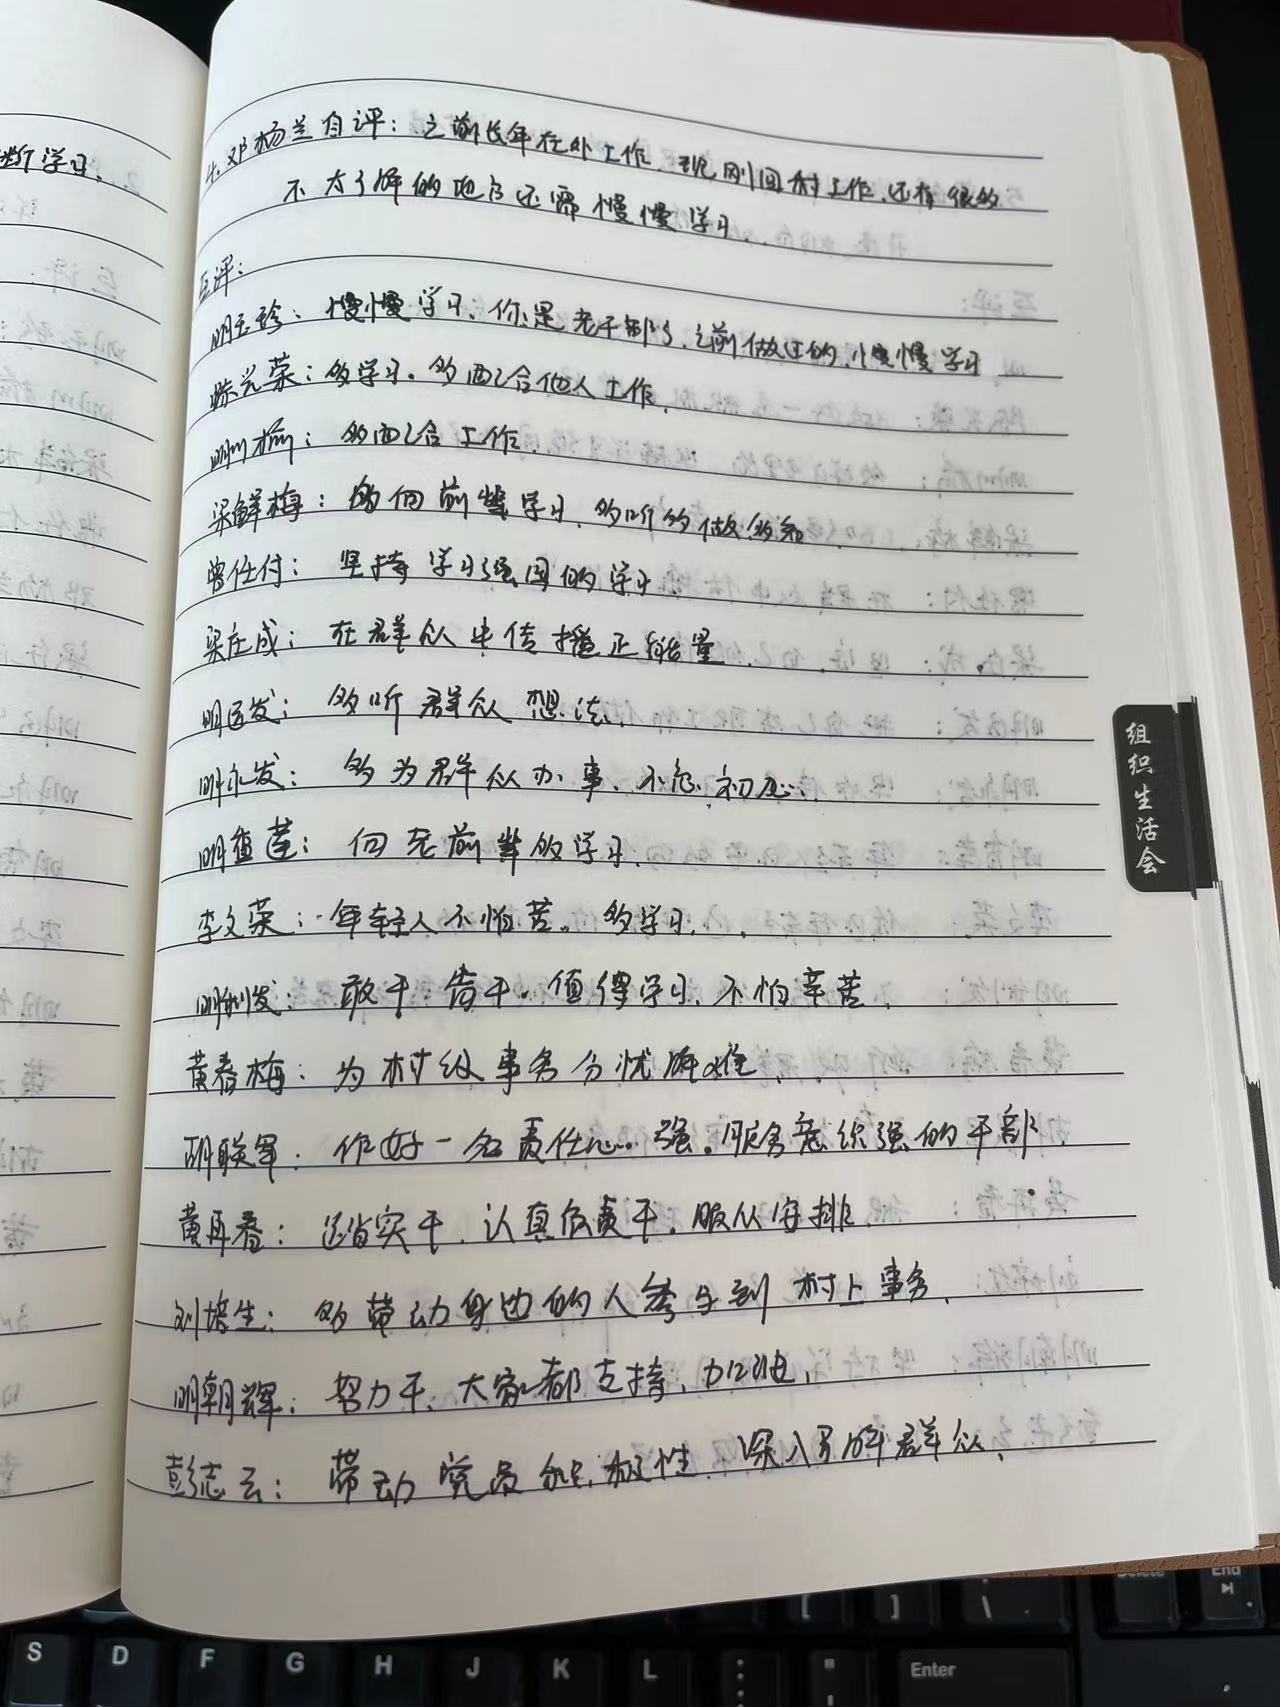 断学习、
4. 邓杨兰自评：之前长年在外工作、现刚回村工作、还有很多
不太了解的地方还需慢慢学习、
互评：
明玉珍：慢慢学习、你是老干部了、之前做过的、慢慢学习
陈兴荣：多学习。多配合他人工作、
明川榆：多配合工作、
梁鲜梅：多向前辈学习、多听多做多看、
曾仕付：坚持学习强国的学习、
梁庄成：在群众中传播正能量、
明远发：多听群众想法、
明永发：多为群众办事、不忘初心、
明值莲：向老前辈多学习、
李文荣：年轻人不怕苦。多学习、
明利发：敢干肯干。值得学习、不怕辛苦、
黄春梅：为村级事务分忧解难、
胡联军：作好一名责任心强。服务意识强的干部、
黄再春：踏实干、认真负责干。服从安排
刘培生：多带动身边的人参与到村上事务、
明朝辉：努力干、大家都支持、加油、
彭志云：带动党员积极性、深入了解群众、
组织生活会
S D F G H J K L : ; " '
Enter
Delete
End
[ ] \